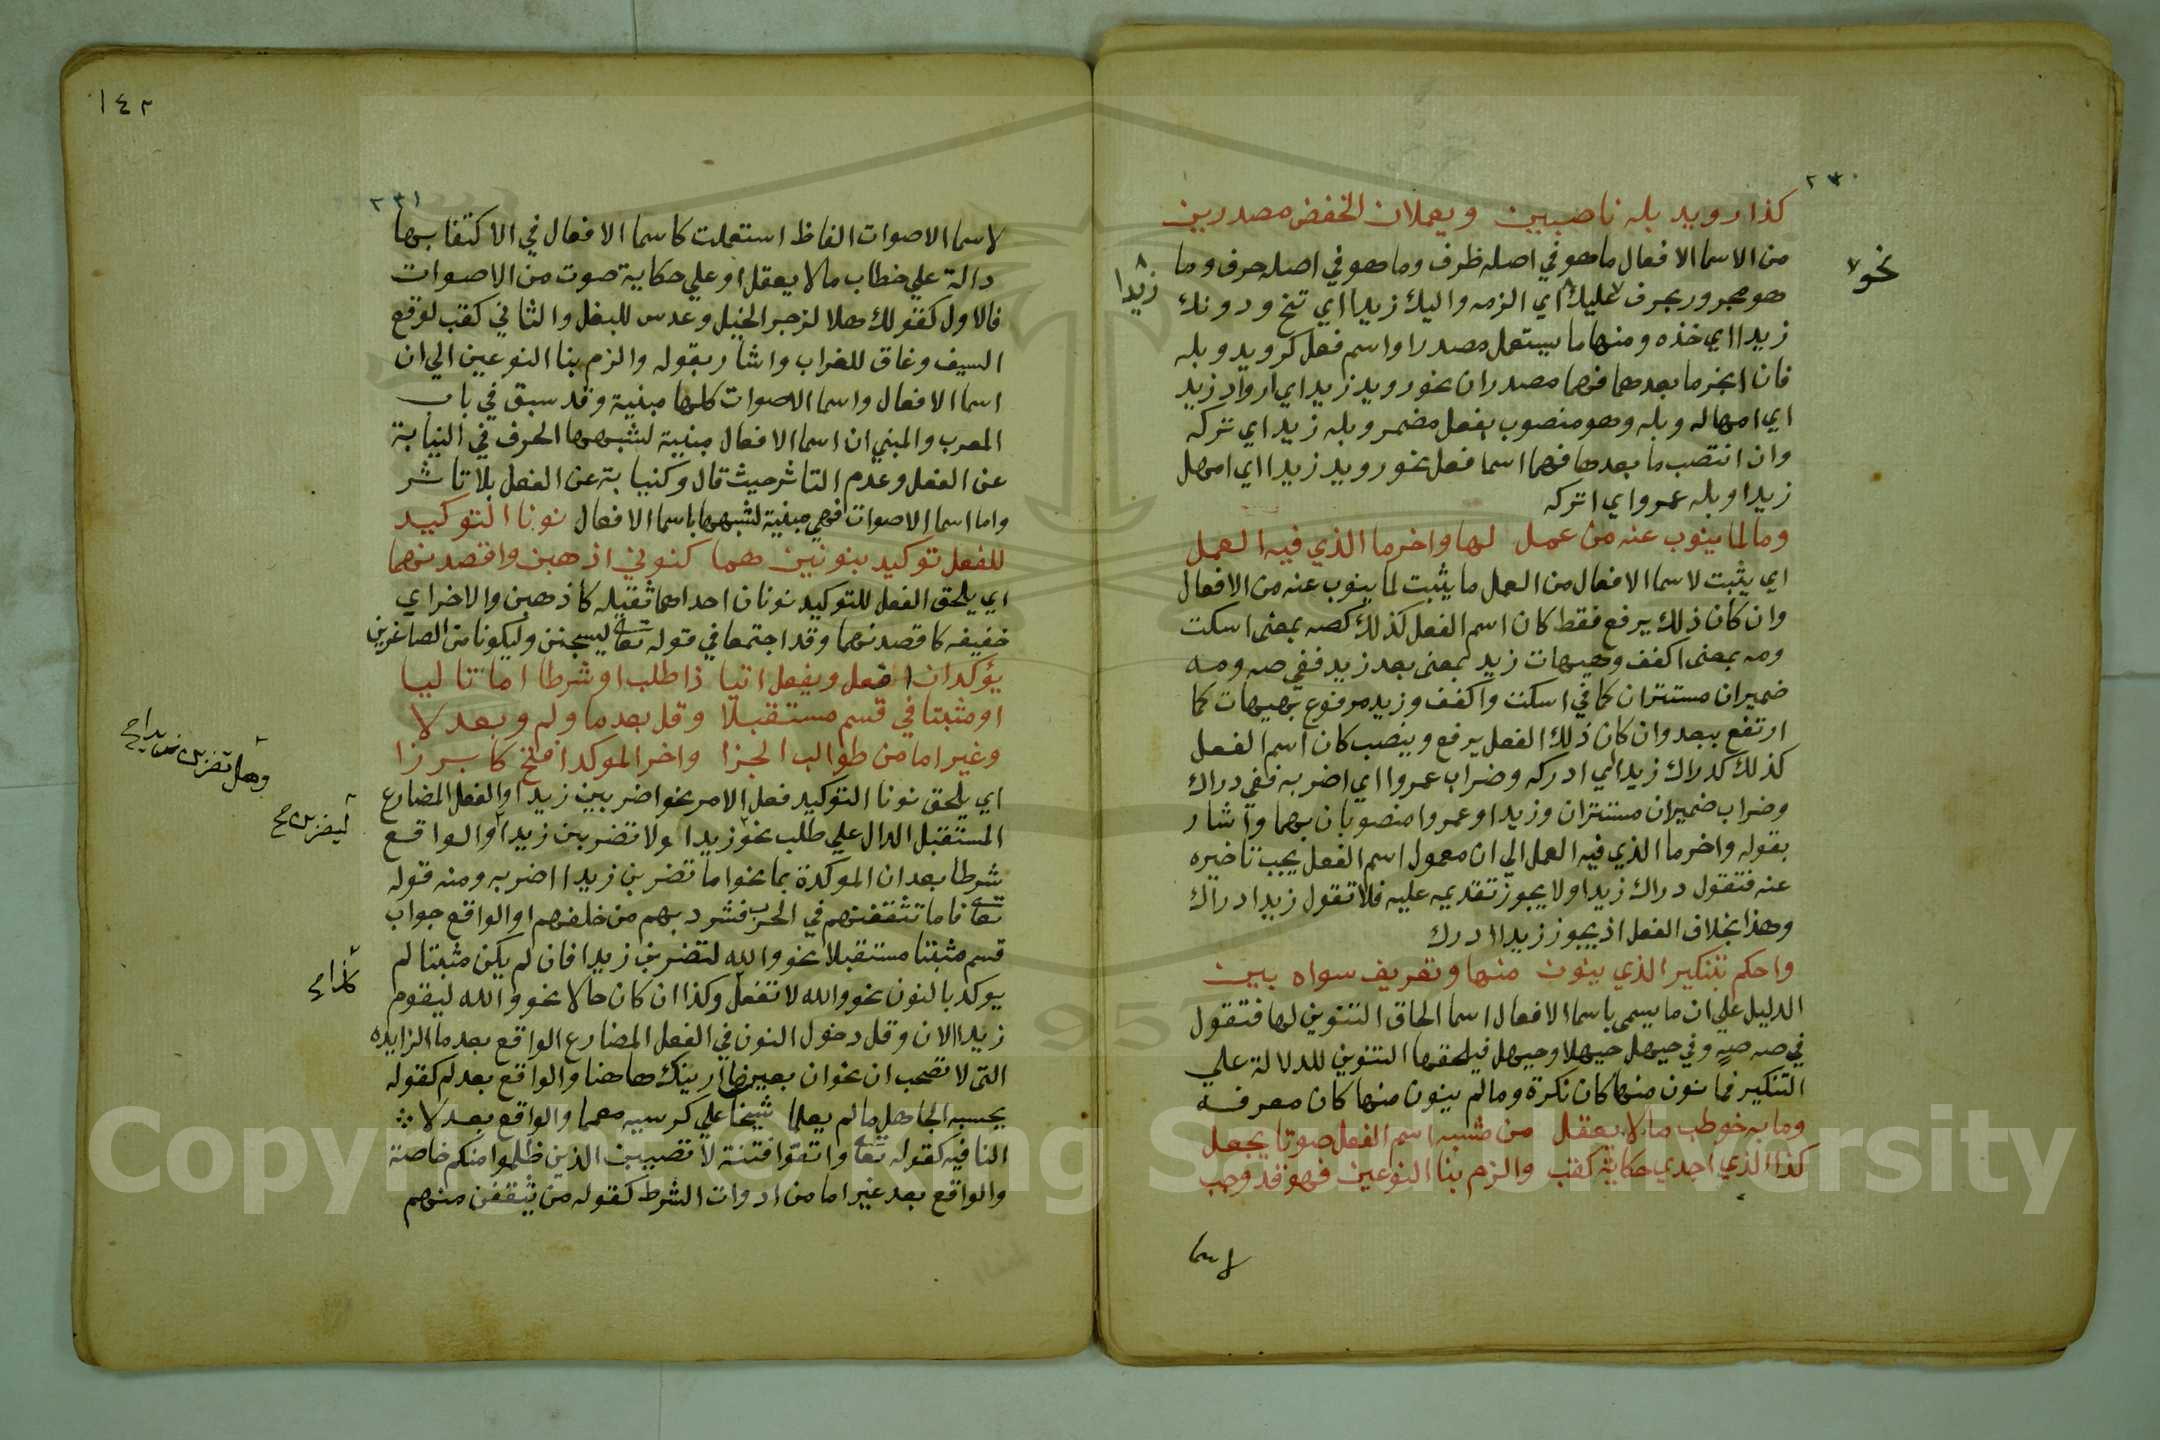 ٢٣٠
كذا رويد بله ناصبين ويعملان الخفض مصدرين
من الاسما الافعال ما هو في اصله ظرف وما هو في اصله حرف وما
نحو
هو مجرور بحرف عليك اي الزمه واليك زيدا اي تنح ودونك
زيدا
زيدا اي خذه ومنها ما يستعمل مصدرا واسم فعل كرويد وبله
فان انجر ما بعدهما فهما مصدران نحو رويد زيد اي ارواد زيد
اي امهاله وبله وهو منصوب بفعل مضمر وبله زيد اي تركه
وان انتصب ما بعدها فهما اسما فعل نحو رويد زيدا اي امهل
زيدا وبله عمروا اي اتركه
وما لما ينوب عنه من عمل لها واخر ما الذي فيه العمل
اي يثبت لاسما الافعال من العمل ما يثبت لما ينوب عنه من الافعال
وان كان ذلك يرفع فقط كان اسم الفعل كذلك كصه بمعنى اسكت
ومه بمعنى اكفف وهيهات زيد بمعنى بعد زيد ففي صه ومه
ضميران مستتران كما في اسكت واكفف وزيد مرفوع بهيهات كما
ارتفع ببعد وان كان ذلك الفعل يرفع وينصب كان اسم الفعل
كذلك كدراك زيدا اي ادركه وضراب عمروا اي اضربه ففي دراك
وضراب ضميران مستتران وزيدا وعمروا منصوبان بهما واشار
بقوله واخر ما الذي فيه العمل الي ان معمول اسم الفعل يجب تاخيره
عنه فتقول دراك زيدا ولا يجوز تقديمه عليه فلا تقول زيدا دراك
وهذا بخلاف الفعل اذ يجوز زيدا ادرك
واحكم بتنكير الذي ينون منها وتعريف سواه بين
الدليل علي ان ما يسمى باسما الافعال اسما الحاق التنوين لها فتقول
في صه صه وفي حيهل حيهلا وحيهل فيلحقها التنوين للدلالة علي
التنكير فما نون منها كان نكرة وما لم ينون منها كان معرفة
وما به خوطب ما لا يعقل من مشبه اسم الفعل صوتا يجعل
كذا الذي اجدي حكاية كقب والزم بنا النوعين فهو قد وجب
لاسما
١٤٢
٢٣١
لاسما الاصوات الفاظ استعملت كاسما الافعال في الاكتفا بها
دالة علي خطاب مالا يعقل او علي حكاية صوت من الاصوات
فالاول كقولك هلا لزجر الخيل وعدس للبغل والثاني كقب لوقع
السيف وغاق للغراب واشار بقوله والزم بنا النوعين الي ان
اسما الافعال واسما الاصوات كلها مبنية وقد سبق في باب
المعرب والمبني ان اسما الافعال مبنية لشبهها الحرف في النيابة
عن الفعل وعدم التاثر حيث قال وكنيابة عن الفعل بلا تاثر
واما اسما الاصوات فهي مبنية لشبهها باسما الافعال نونا التوكيد
للفعل توكيد بنونين هما كنوني اذهبن واقصدنهما
اي يلحق الفعل للتوكيد نونان احداهما ثقيله كاذهبن والاخراي
خفيفه كاقصدنهما وقد اجتمعا في قوله تعا ليسجنن وليكونا من الصاغرين
يؤكدان افعل ويفعل اتيا ذا طلب او شرطا اما تاليا
او مثبتا في قسم مستقبلا وقل بعد ما ولم وبعد لا
وغير اما من طوالب الجزا واخر الموكد افتح كابرزا
اي يلحق نونا التوكيد فعل الامر نحو اضربين زيدا والفعل المضارع
المستقبل الدال علي طلب نحو زيدا ولا تضربن زيدا والواقع
ليضربن
شرطا بعد ان الموكدة بما نحو اما تضربن زيدا اضربه ومنه قوله
تعا فاما تثقفنهم في الحرب فشرد بهم من خلفهم او الواقع جواب
قسم مثبتا مستقبلا نحو والله لتضربن زيدا فان لم يكن مثبتا لم
يوكد بالنون نحو والله لا تفعل وكذا ان كان حالا نحو والله ليقوم
زيدا الان وقل دخول النون في الفعل المضارع الواقع بعد ما الزايده
التى لا تصحب ان نحو بعين ما ارينك هاهنا والواقع بعد لم كقوله
يحسبه الجاهل مالم يعلما شيخا علي كرسيه معمما والواقع بعد لا
النافيه كقوله تعا واتقوا فتنة لا تصيبن الذين ظلموا منكم خاصة
والواقع بعد غير اما من ادوات الشرط كقوله من يثقفن منهم
Copyright © King Saud University